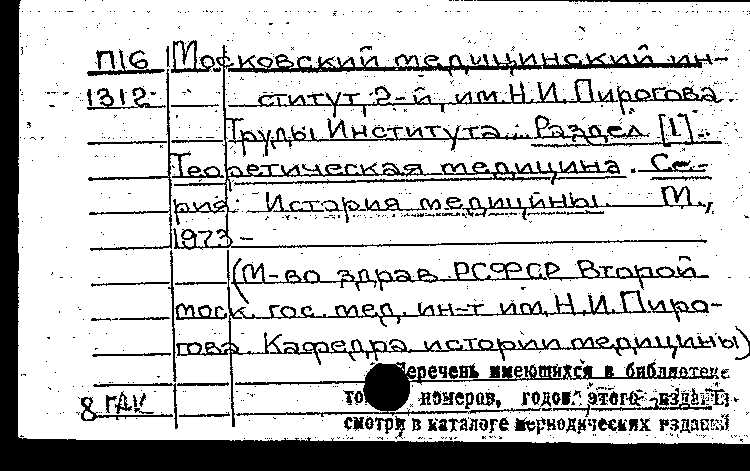 П16 Московский медицинский ин-
1312 ститут, 2-й, им. Н.И. Пирогова.
Труды Института... Раздел [1]..
Теоретическая медицина. Се-
рия: История медицины. М.,
1973 -
(М-во здрав РСФСР Второй
моск. гос. мед. ин-т им. Н.И. Пиро-
гова. Кафедра истории медицины)
Перечень имеющихся в библиотеке
номеров, годов этого издания
8 ГАК
смотри в каталоге периодических изданий